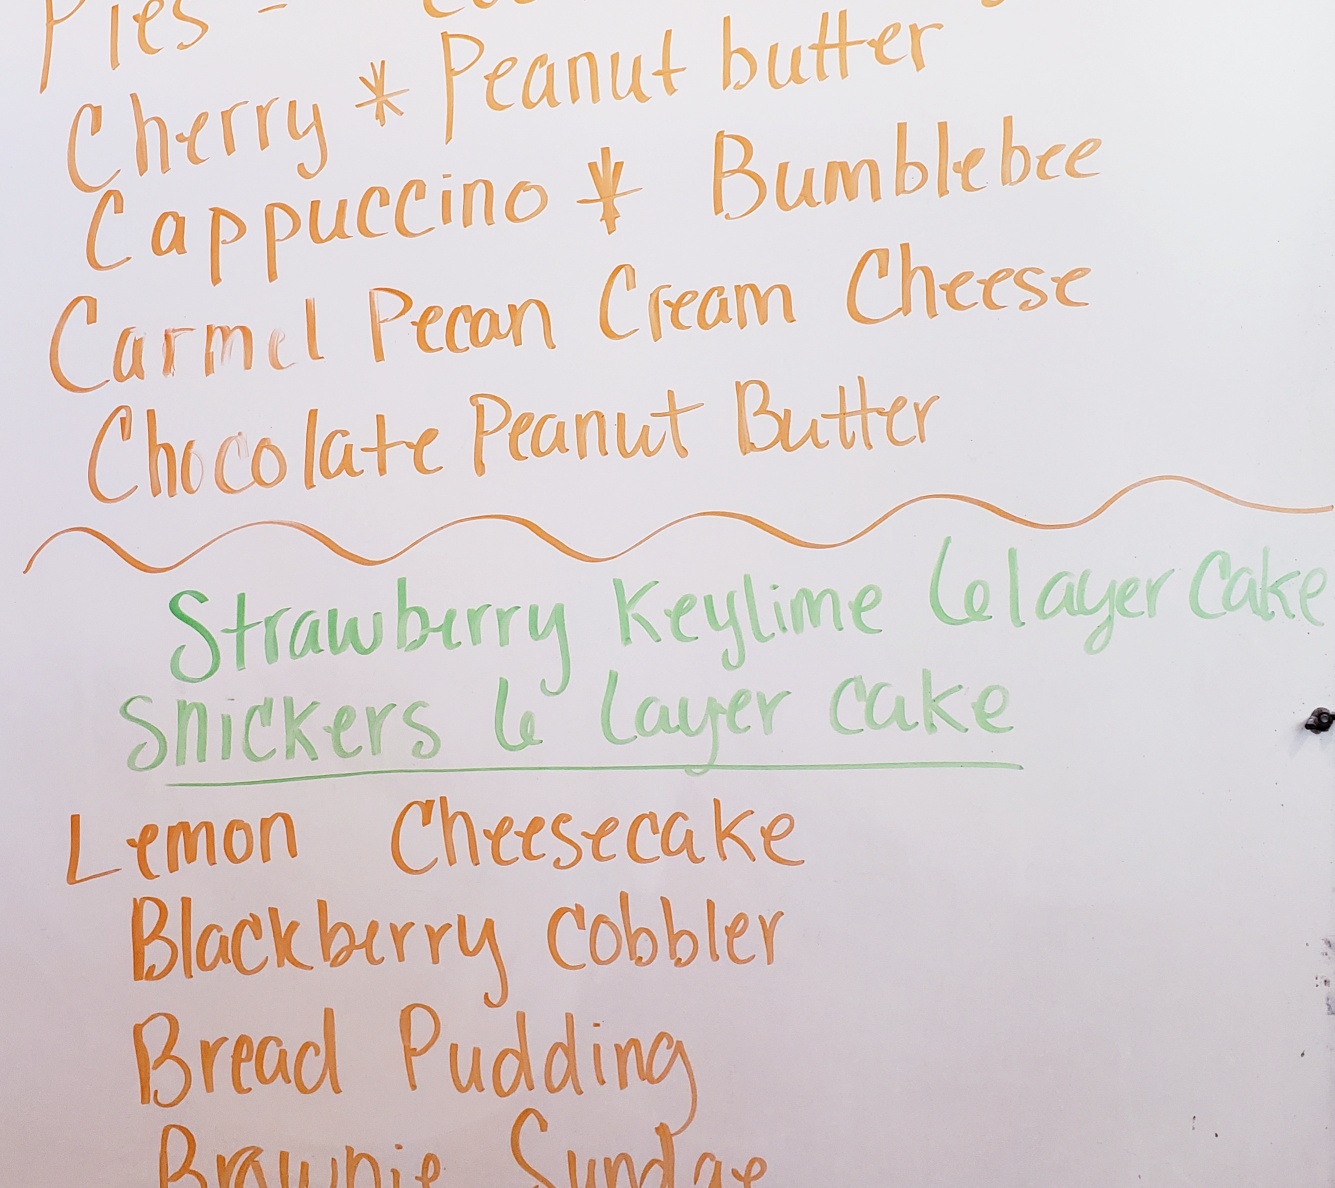 Pies -
Cherry * Peanut butter
Cappuccino * Bumblebee
Carmel Pecan Cream Cheese
Chocolate Peanut Butter
Strawberry Keylime 6 layer Cake
Snickers 6 layer cake
Lemon Cheesecake
Blackberry cobbler
Bread Pudding
Brownie Sundae